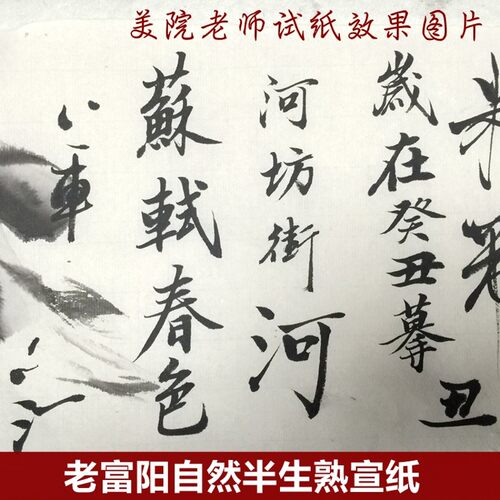 美院老师试纸效果图片
歲在癸丑摹
丑
河坊街河
蘇軾春色
八一車
老富阳自然半生熟宣纸